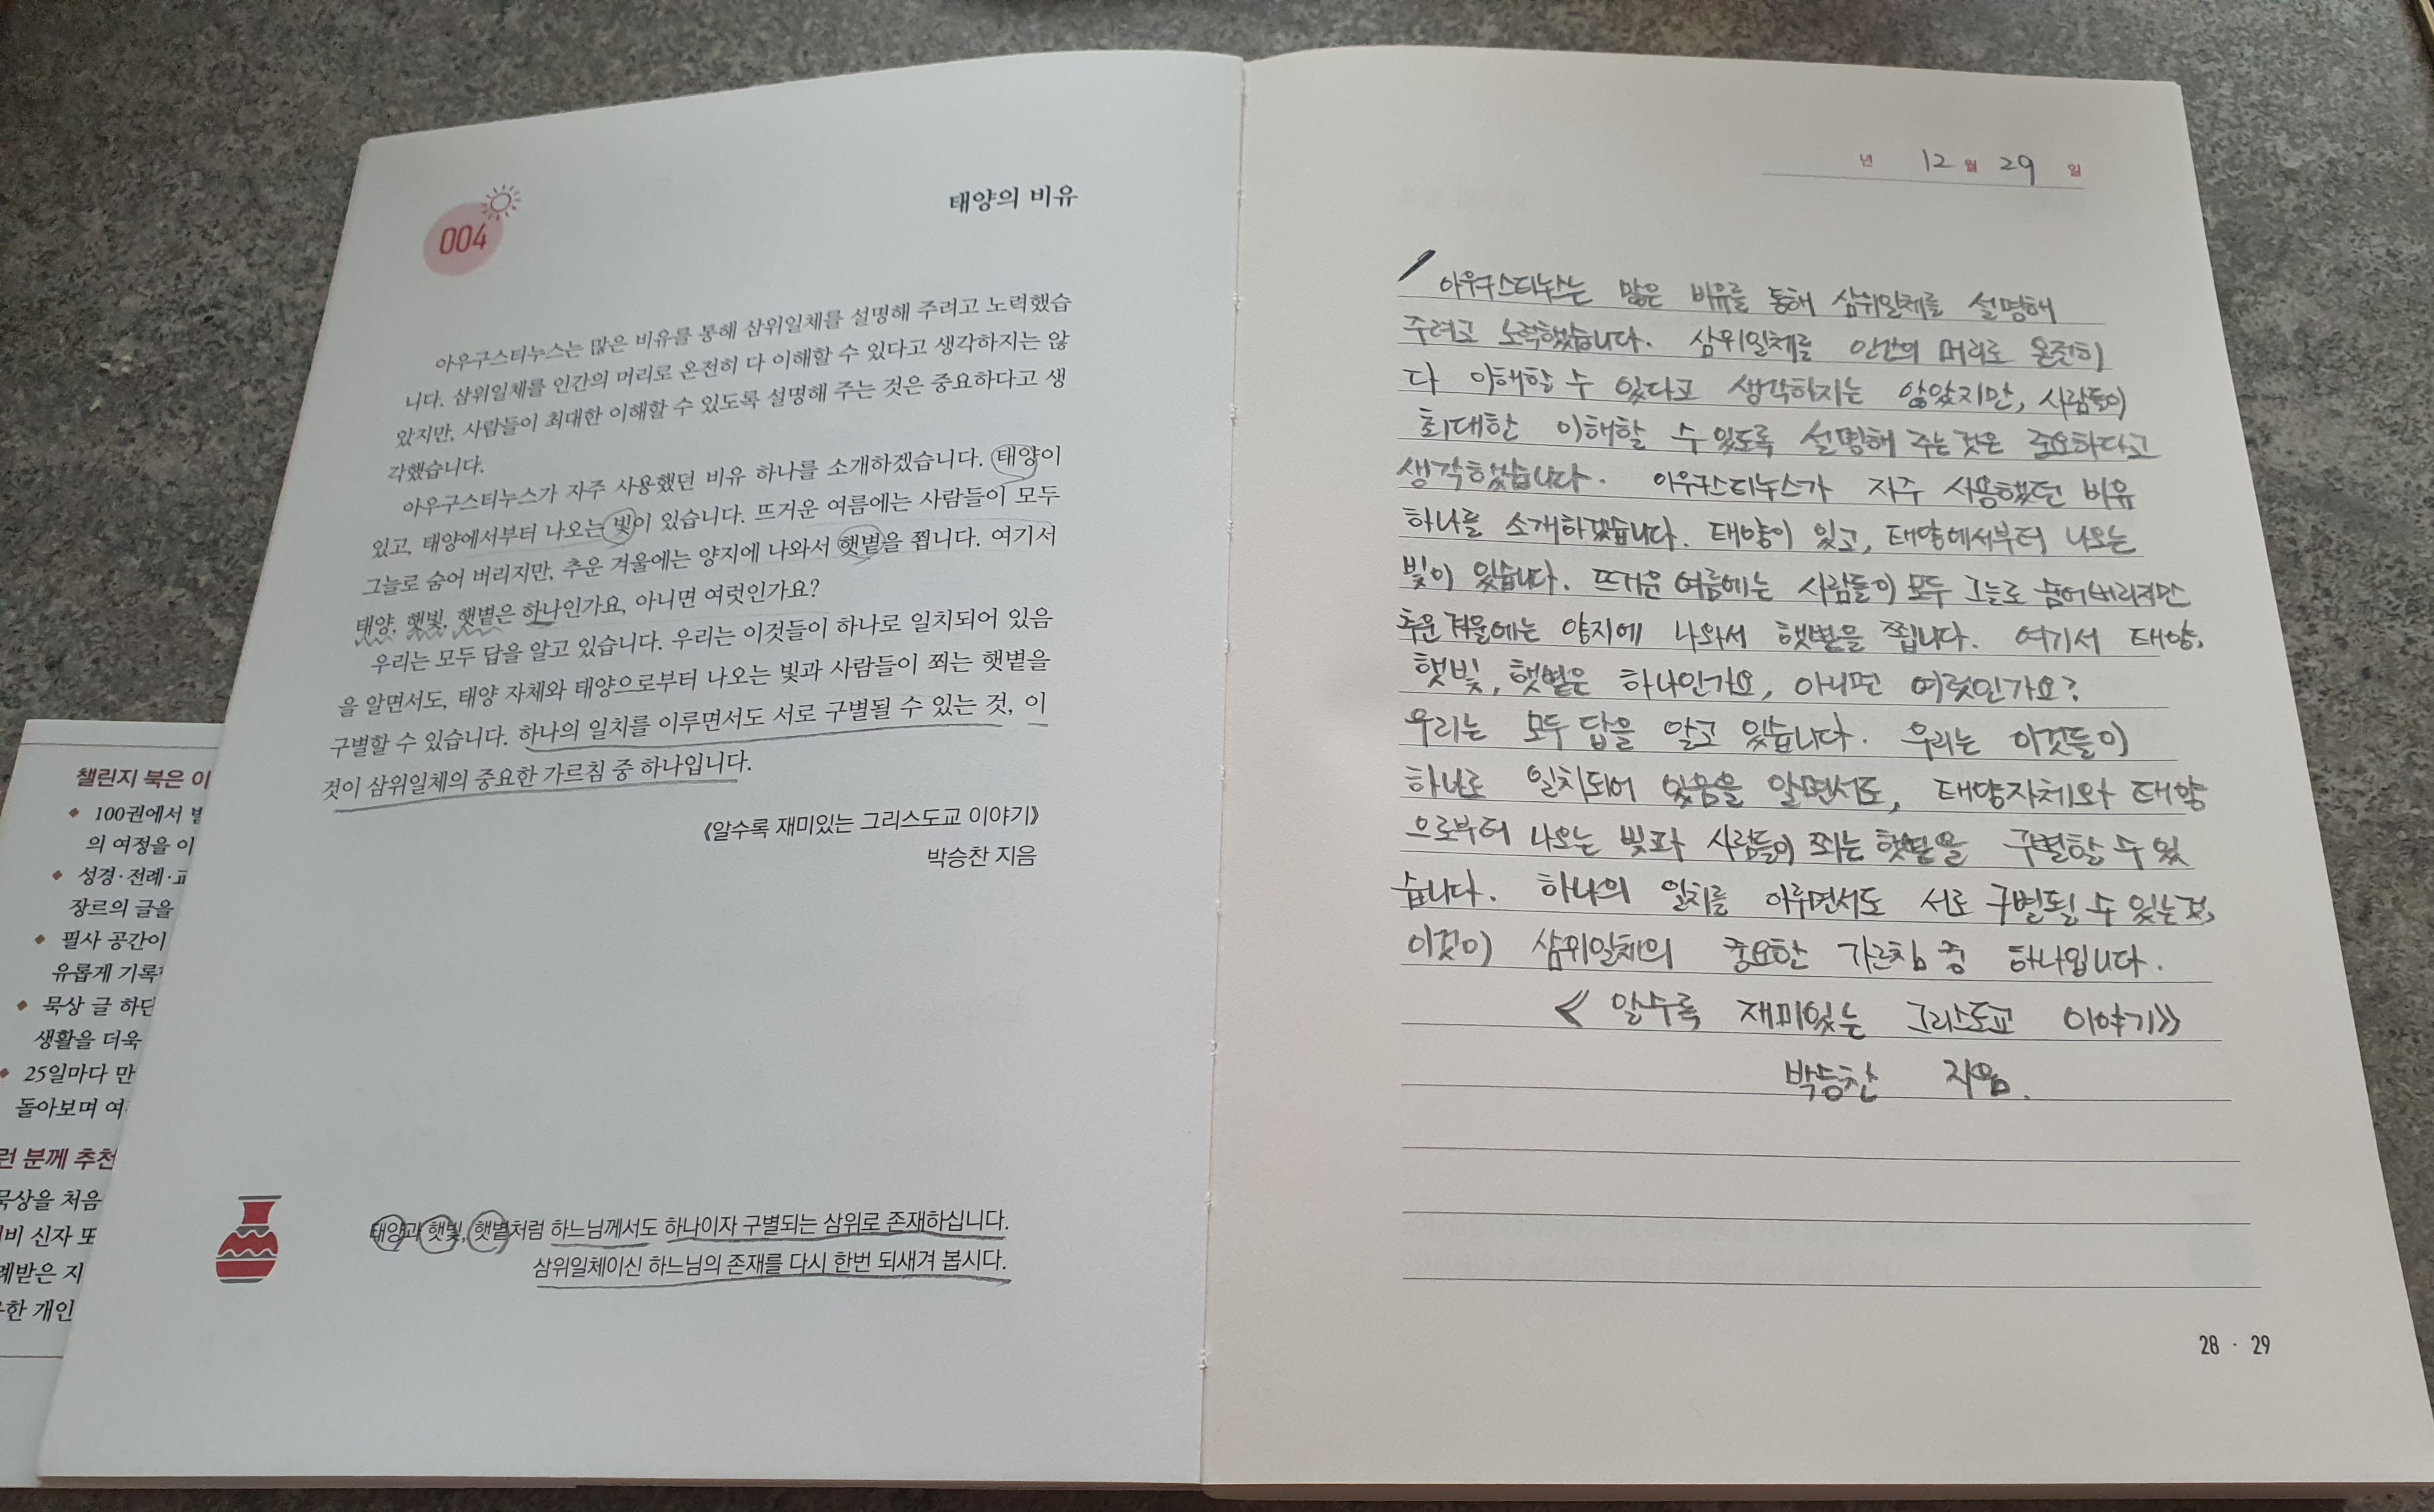 004
태양의 비유
아우구스티누스는 많은 비유를 통해 삼위일체를 설명해 주려고 노력했습
니다. 삼위일체를 인간의 머리로 온전히 다 이해할 수 있다고 생각하지는 않
았지만, 사람들이 최대한 이해할 수 있도록 설명해 주는 것은 중요하다고 생
각했습니다.
아우구스티누스가 자주 사용했던 비유 하나를 소개하겠습니다. 태양이
있고, 태양에서부터 나오는 빛이 있습니다. 뜨거운 여름에는 사람들이 모두
그늘로 숨어 버리지만, 추운 겨울에는 양지에 나와서 햇볕을 쬡니다. 여기서
태양, 햇빛, 햇볕은 하나인가요, 아니면 여럿인가요?
우리는 모두 답을 알고 있습니다. 우리는 이것들이 하나로 일치되어 있음
을 알면서도, 태양 자체와 태양으로부터 나오는 빛과 사람들이 쬐는 햇볕을
구별할 수 있습니다. 하나의 일치를 이루면서도 서로 구별될 수 있는 것, 이
것이 삼위일체의 중요한 가르침 중 하나입니다.
《알수록 재미있는 그리스도교 이야기》
박승찬 지음
태양과 햇빛, 햇볕처럼 하느님께서도 하나이자 구별되는 삼위로 존재하십니다.
삼위일체이신 하느님의 존재를 다시 한번 되새겨 봅시다.
챌린지 북은 이
100권에서
의 여정을 이
성경·전례·교
장르의 글을
필사 공간이
유롭게 기록
묵상 글 하단
생활을 더욱
25일마다 만
돌아보며 여
런 분께 추천
묵상을 처음
비 신자 또
례받은 지
한 개인
년 12월 29일
아우구스티누스는 많은 비유를 통해 삼위일체를 설명해
주려고 노력했습니다. 삼위일체를 인간의 머리로 온전히
다 이해할 수 있다고 생각하지는 않았지만, 사람들이
최대한 이해할 수 있도록 설명해 주는것은 중요하다고
생각했습니다. 아우구스티누스가 자주 사용했던 비유
하나를 소개하겠습니다. 태양이 있고, 태양에서부터 나오는
빛이 있습니다. 뜨거운 여름에는 사람들이 모두 그늘로 숨어버리지만
추운겨울에는 양지에 나와서 햇볕을 쬡니다. 여기서 태양,
햇빛, 햇볕은 하나인가요, 아니면 여럿인가요?
우리는 모두 답을 알고 있습니다. 우리는 이것들이
하나로 일치되어 있음을 알면서도, 태양자체와 태양
으로부터 나오는 빛과 사람들이 쬐는 햇볕을 구별할 수 있
습니다. 하나의 일치를 이루면서도 서로 구별될 수 있는것,
이것이 삼위일체의 중요한 가르침 중 하나입니다.
《알수록 재미있는 그리스도교 이야기》
박승찬 지음.
28 · 29